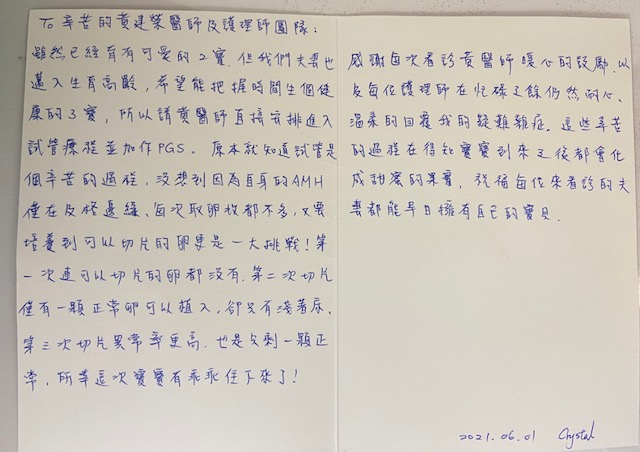 To 辛苦的黃建榮醫師及護理師團隊:
雖然已經育有可愛的2寶, 但我們夫妻也
邁入生育高齡, 希望能把握時間生個健
康的3寶, 所以請黃醫師直接安排進入
試管療程並加作PGS. 原本就知道試管是
個辛苦的過程, 沒想到因為自身的AMH
僅在及格邊緣、每次取卵枚都不多, 又要
培養到可以切片的卵更是一大挑戰! 第
一次連可以切片的卵都沒有. 第二次切片
僅有一顆正常卵可以植入, 卻只有淺著床、
第三次切片異常率更高. 也是只剩一顆正
常. 所幸這次寶寶有乖乖住下來了!
感謝每次看診黃醫師暖心的鼓勵. 以
及每位護理師在忙碌之餘仍然耐心、
溫柔的回覆我的疑難雜症. 這些辛苦
的過程在得知寶寶到來之後都會化
成甜蜜的果實, 祝福每位來看診的夫
妻都能早日擁有自己的寶貝.
2021.06.01 Crystal